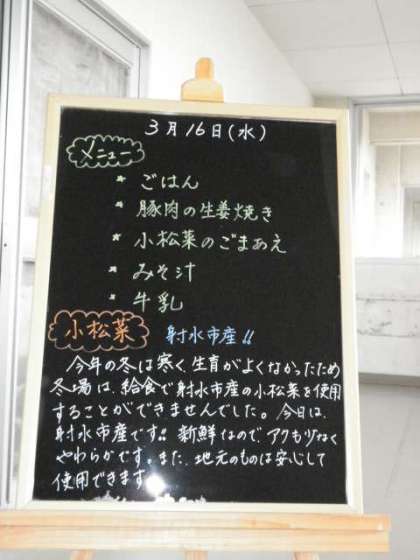 3月16日(水)
メニュー
★ ごはん
★ 豚肉の生姜焼き
★ 小松菜のごまあえ
★ みそ汁
★ 牛乳
小松菜 射水市産!!
今年の冬は寒く生育がよくなかったため
冬場は、給食で射水市産の小松菜を使用
することができませんでした。今日は、
射水市産です!! 新鮮なので、アクも少なく
やわらかです。また、地元のものは安心して
使用できます